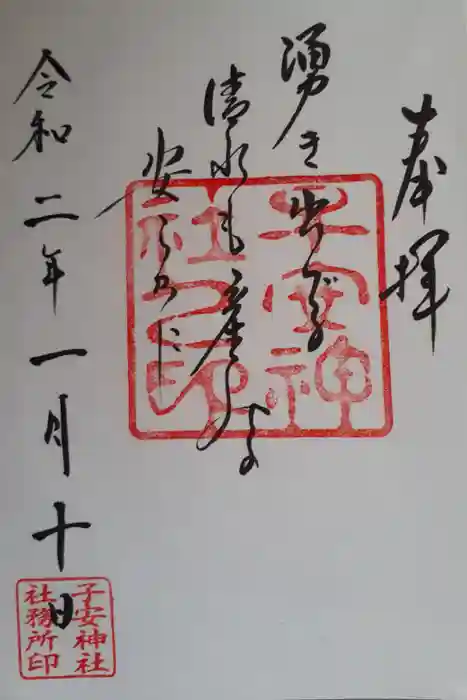 奉拝
湧き出づる
清水も産
安らかに
令和二年一月十日
子安神社印
子安神社
社務所印